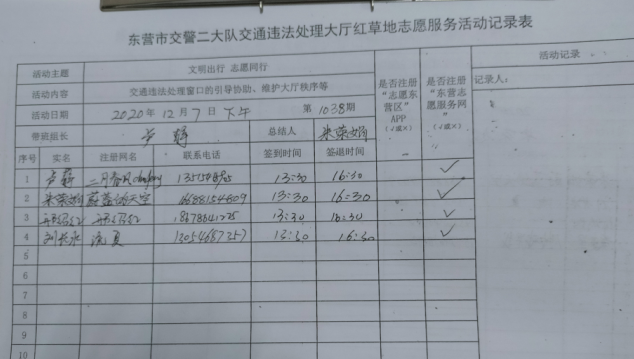 东营市交警二大队交通违法处理大厅红草地志愿服务活动记录表
活动主题 文明出行 志愿同行 是否注册“志愿东营区”APP（√或×） 是否注册“东营志愿服务网”（√或×） 活动记录
活动内容 交通违法处理窗口的引导协助、维护大厅秩序等 记录人：
活动日期 2020年12月7日下午 第1038期
带班组长 总结人 朱荣娟
序号 实名 注册网名 联系电话 签到时间 签退时间
1 二月春风 13:30 16:30 √
2 朱荣娟 蔚蓝的天空 13:30 16:30 √
3 13:30 16:30 √
4 流夏 13054687257 13:30 16:30 √
5
6
7
8
9
10